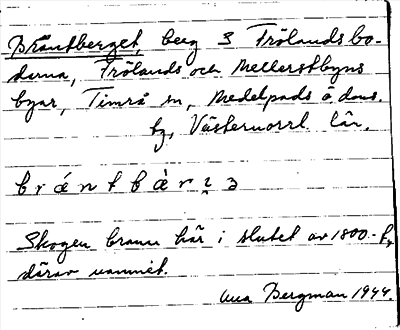 Bräntberget, berg S Frölandsbo-
darna, Frölands och Mellerstbyns
byar, Timrå sn, Medelpads ö. doms.
fg, Västernorrl. län.
bränt bàrɩ̨ ə
Skogen brann här i slutet av 1800-t,
därav namnet.
Bergman 1944.